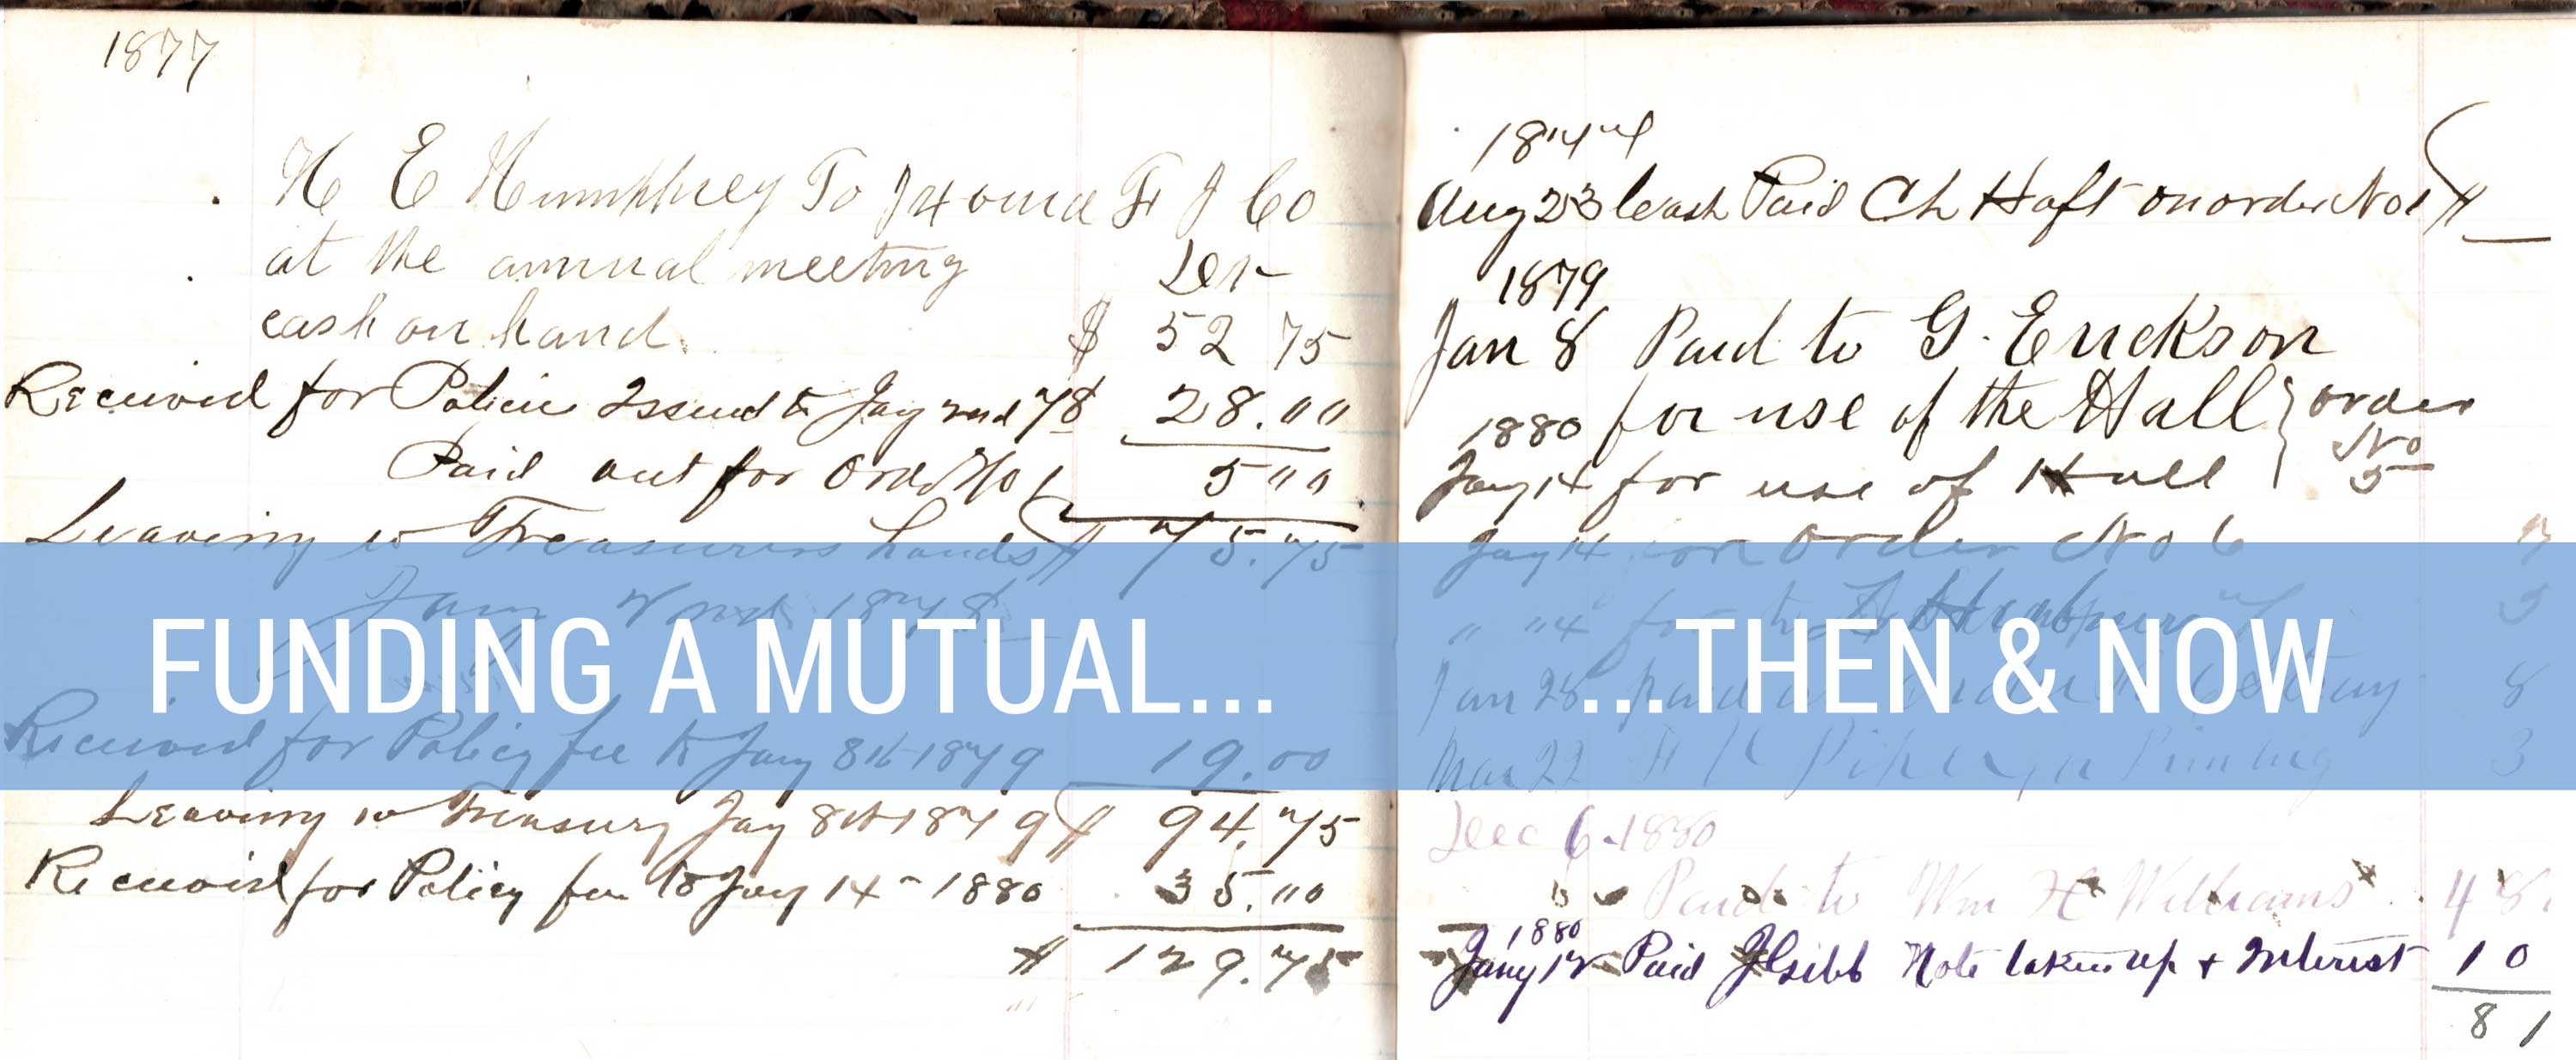 1877
H E Humphrey To
at the annual meeting
cash on hand. $ 52 75
Received for Policie Issued to Jay 2nd 78 28.""
Paid out for Ord No 1 5 ""
Leaving in Treasurers hands $ 75.75
1878
FUNDING A MUTUAL...
Received for Policy fee to Jany 8th 1879 19.00
Leaving in Treasury Jay 8th 1879 $ 94,75
Received for Policy fee to Jay 14 - 1880 35.""
$ 129.75
Aug 23 Cash Paid Ch Haft on order No 1 $
1879
Jan 8 Paid to G. Erickson
for use of the Hall } order
1880 No
Jay 14 for use of Hall 5
Jay 14 for order No 6
" "4
...THEN & NOW
Jan 28 Paid 8
Mar 22 3
Dec 6 - 1880
Paid to Wm H Williams 48
1880
Jany 12 Paid J Gibb Note taken up + Interest 10
81